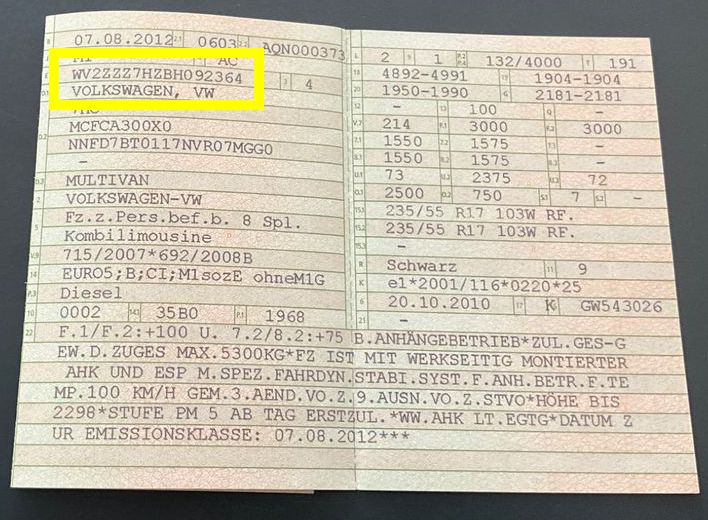 B 07.08.2012 2.1 0603 2.2 AQN000373
J M1 4 AC
E WV2ZZZ7HZBH092364 3 4
D.1 VOLKSWAGEN, VW
7HC
MCFCA300X0
D.2 NNFD7BT0117NVR07MGG0
–
D.3 MULTIVAN
2 VOLKSWAGEN-VW
5 Fz.z.Pers.bef.b. 8 Spl.
Kombilimousine
V.9 715/2007*692/2008B
14 EURO5;B;CI;M1sozE ohneM1G
P.3 Diesel
10 0002 14.1 35B0 P.1 1968
L 2 9 1 P.2 P.4 132/4000 T 191
18 4892-4991 19 1904-1904
20 1950-1990 G 2181-2181
12 – 13 100 Q –
V.7 214 F.1 3000 F.2 3000
7.1 1550 7.2 1575 7.3 –
8.1 1550 8.2 1575 8.3 –
U.1 73 U.2 2375 U.3 72
O.1 2500 O.2 750 S.1 7 S.2 –
15.1 235/55 R17 103W RF.
15.2 235/55 R17 103W RF.
15.3 –
R Schwarz 11 9
K e1*2001/116*0220*25
6 20.10.2010 17 K 16 GW543026
21 –
22 F.1/F.2:+100 U. 7.2/8.2:+75 B.ANHÄNGEBETRIEB*ZUL.GES-G
EW.D.ZUGES MAX.5300KG*FZ IST MIT WERKSEITIG MONTIERTER
AHK UND ESP M.SPEZ.FAHRDYN.STABI.SYST.F.ANH.BETR.F.TE
MP.100 KM/H GEM.3.AEND.VO.Z.9.AUSN.VO.Z.STVO*HÖHE BIS
2298*STUFE PM 5 AB TAG ERSTZUL.*WW.AHK LT.EGTG*DATUM Z
UR EMISSIONSKLASSE: 07.08.2012***